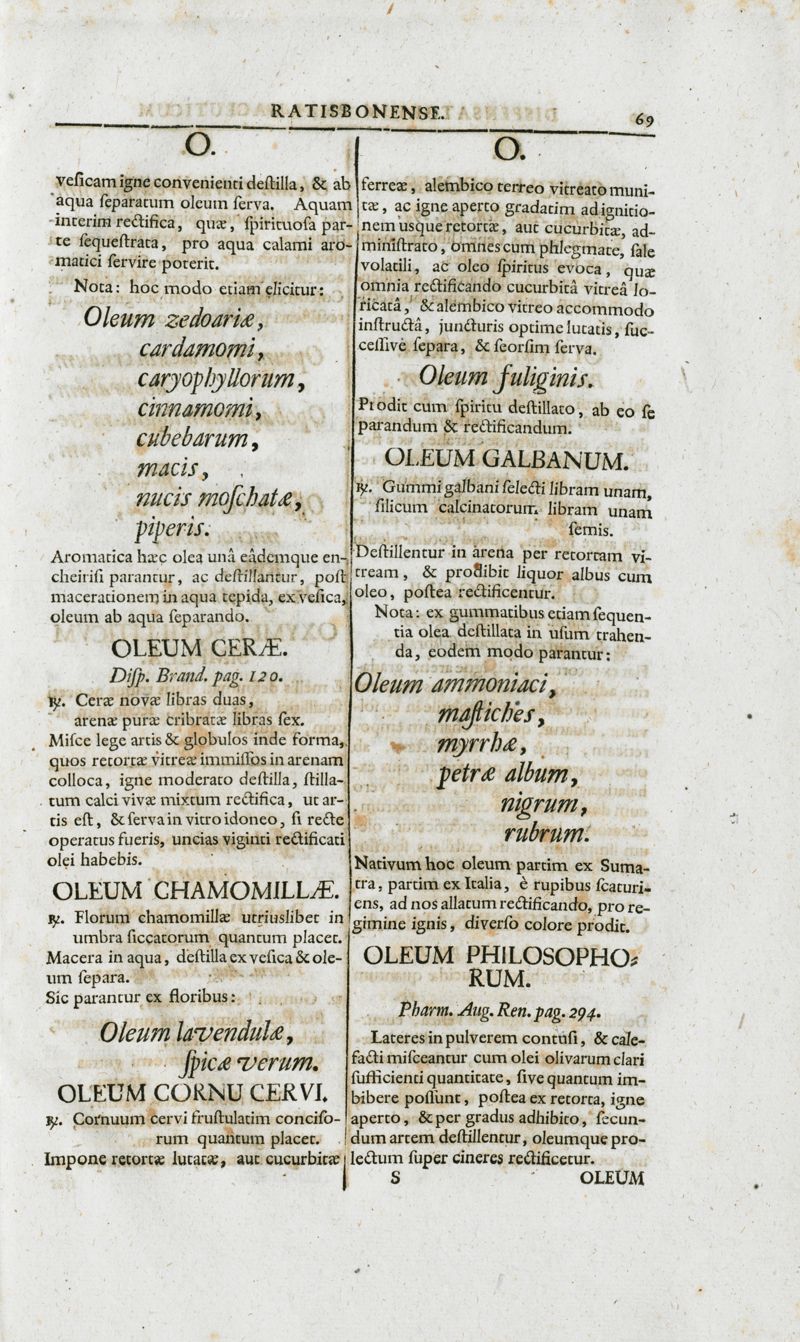 RATISBONENSE.
69
O.
vesicam igne convenienti destilla, & ab
aqua separatum oleum serva. Aquam
interim rectifica, quæ, spirituosa par-
te sequestrata, pro aqua calami aro-
matici servire poterit.
Nota: hoc modo etiam elicitur:
Oleum zedoariæ,
cardamomi,
caryophyllorum,
cinnamomi,
cubebarum,
macis,
nucis moschatæ,
piperis.
Aromatica hæc olea unâ eâdemque en-
cheirisi parantur, ac destillantur, post
macerationem in aqua tepida, ex vesica,
oleum ab aqua separando.
OLEUM CERÆ.
Disp. Brand. pag. 120.
℞. Ceræ novæ libras duas,
arenæ puræ cribratæ libras sex.
Misce lege artis & globulos inde forma,
quos retortæ vitreæ immissos in arenam
colloca, igne moderato destilla, stilla-
tum calci vivæ mixtum rectifica, ut ar-
tis est, & serva in vitro idoneo, si recte
operatus fueris, uncias viginti rectificati
olei habebis.
OLEUM CHAMOMILLÆ.
℞. Florum chamomillæ utriuslibet in
umbra siccatorum quantum placet.
Macera in aqua, destilla ex vesica & ole-
um separa.
Sic parantur ex floribus:
Oleum lavendulæ,
spicæ verum.
OLEUM CORNU CERVI.
℞. Cornuum cervi frustulatim conciso-
rum quantum placet.
Impone retortæ lutatæ, aut cucurbitæ
O.
ferreæ, alembico terreo vitreato muni-
tæ, ac igne aperto gradatim ad ignitio-
nem usque retortæ, aut cucurbitæ, ad-
ministrato, omnes cum phlegmate, sale
volatili, ac oleo spiritus evoca, quæ
omnia rectificando cucurbitâ vitreâ lo-
ricatâ, & alembico vitreo accommodo
instructâ, juncturis optime lutatis, suc-
cessivè separa, & seorsim serva.
Oleum fuliginis.
Prodit cum spiritu destillato, ab eo se
parandum & rectificandum.
OLEUM GALBANUM.
℞. Gummi galbani selecti libram unam,
silicum calcinatorum libram unam
semis.
Destillentur in arena per retortam vi-
tream, & prodibit liquor albus cum
oleo, postea rectificentur.
Nota: ex gummatibus etiam sequen-
tia olea destillata in usum trahen-
da, eodem modo parantur:
Oleum ammoniaci,
mastiches,
myrrhæ,
petræ album,
nigrum,
rubrum.
Nativum hoc oleum partim ex Suma-
tra, partim ex Italia, è rupibus scaturi-
ens, ad nos allatum rectificando, pro re-
gimine ignis, diverso colore prodit.
OLEUM PHILOSOPHO-
RUM.
Pharm. Aug. Ren. pag. 294.
Lateres in pulverem contusi, & cale-
facti misceantur cum olei olivarum clari
sufficienti quantitate, sive quantum im-
bibere possunt, postea ex retorta, igne
aperto, & per gradus adhibito, secun-
dum artem destillentur, oleumque pro-
lectum super cineres rectificetur.
S
OLEUM